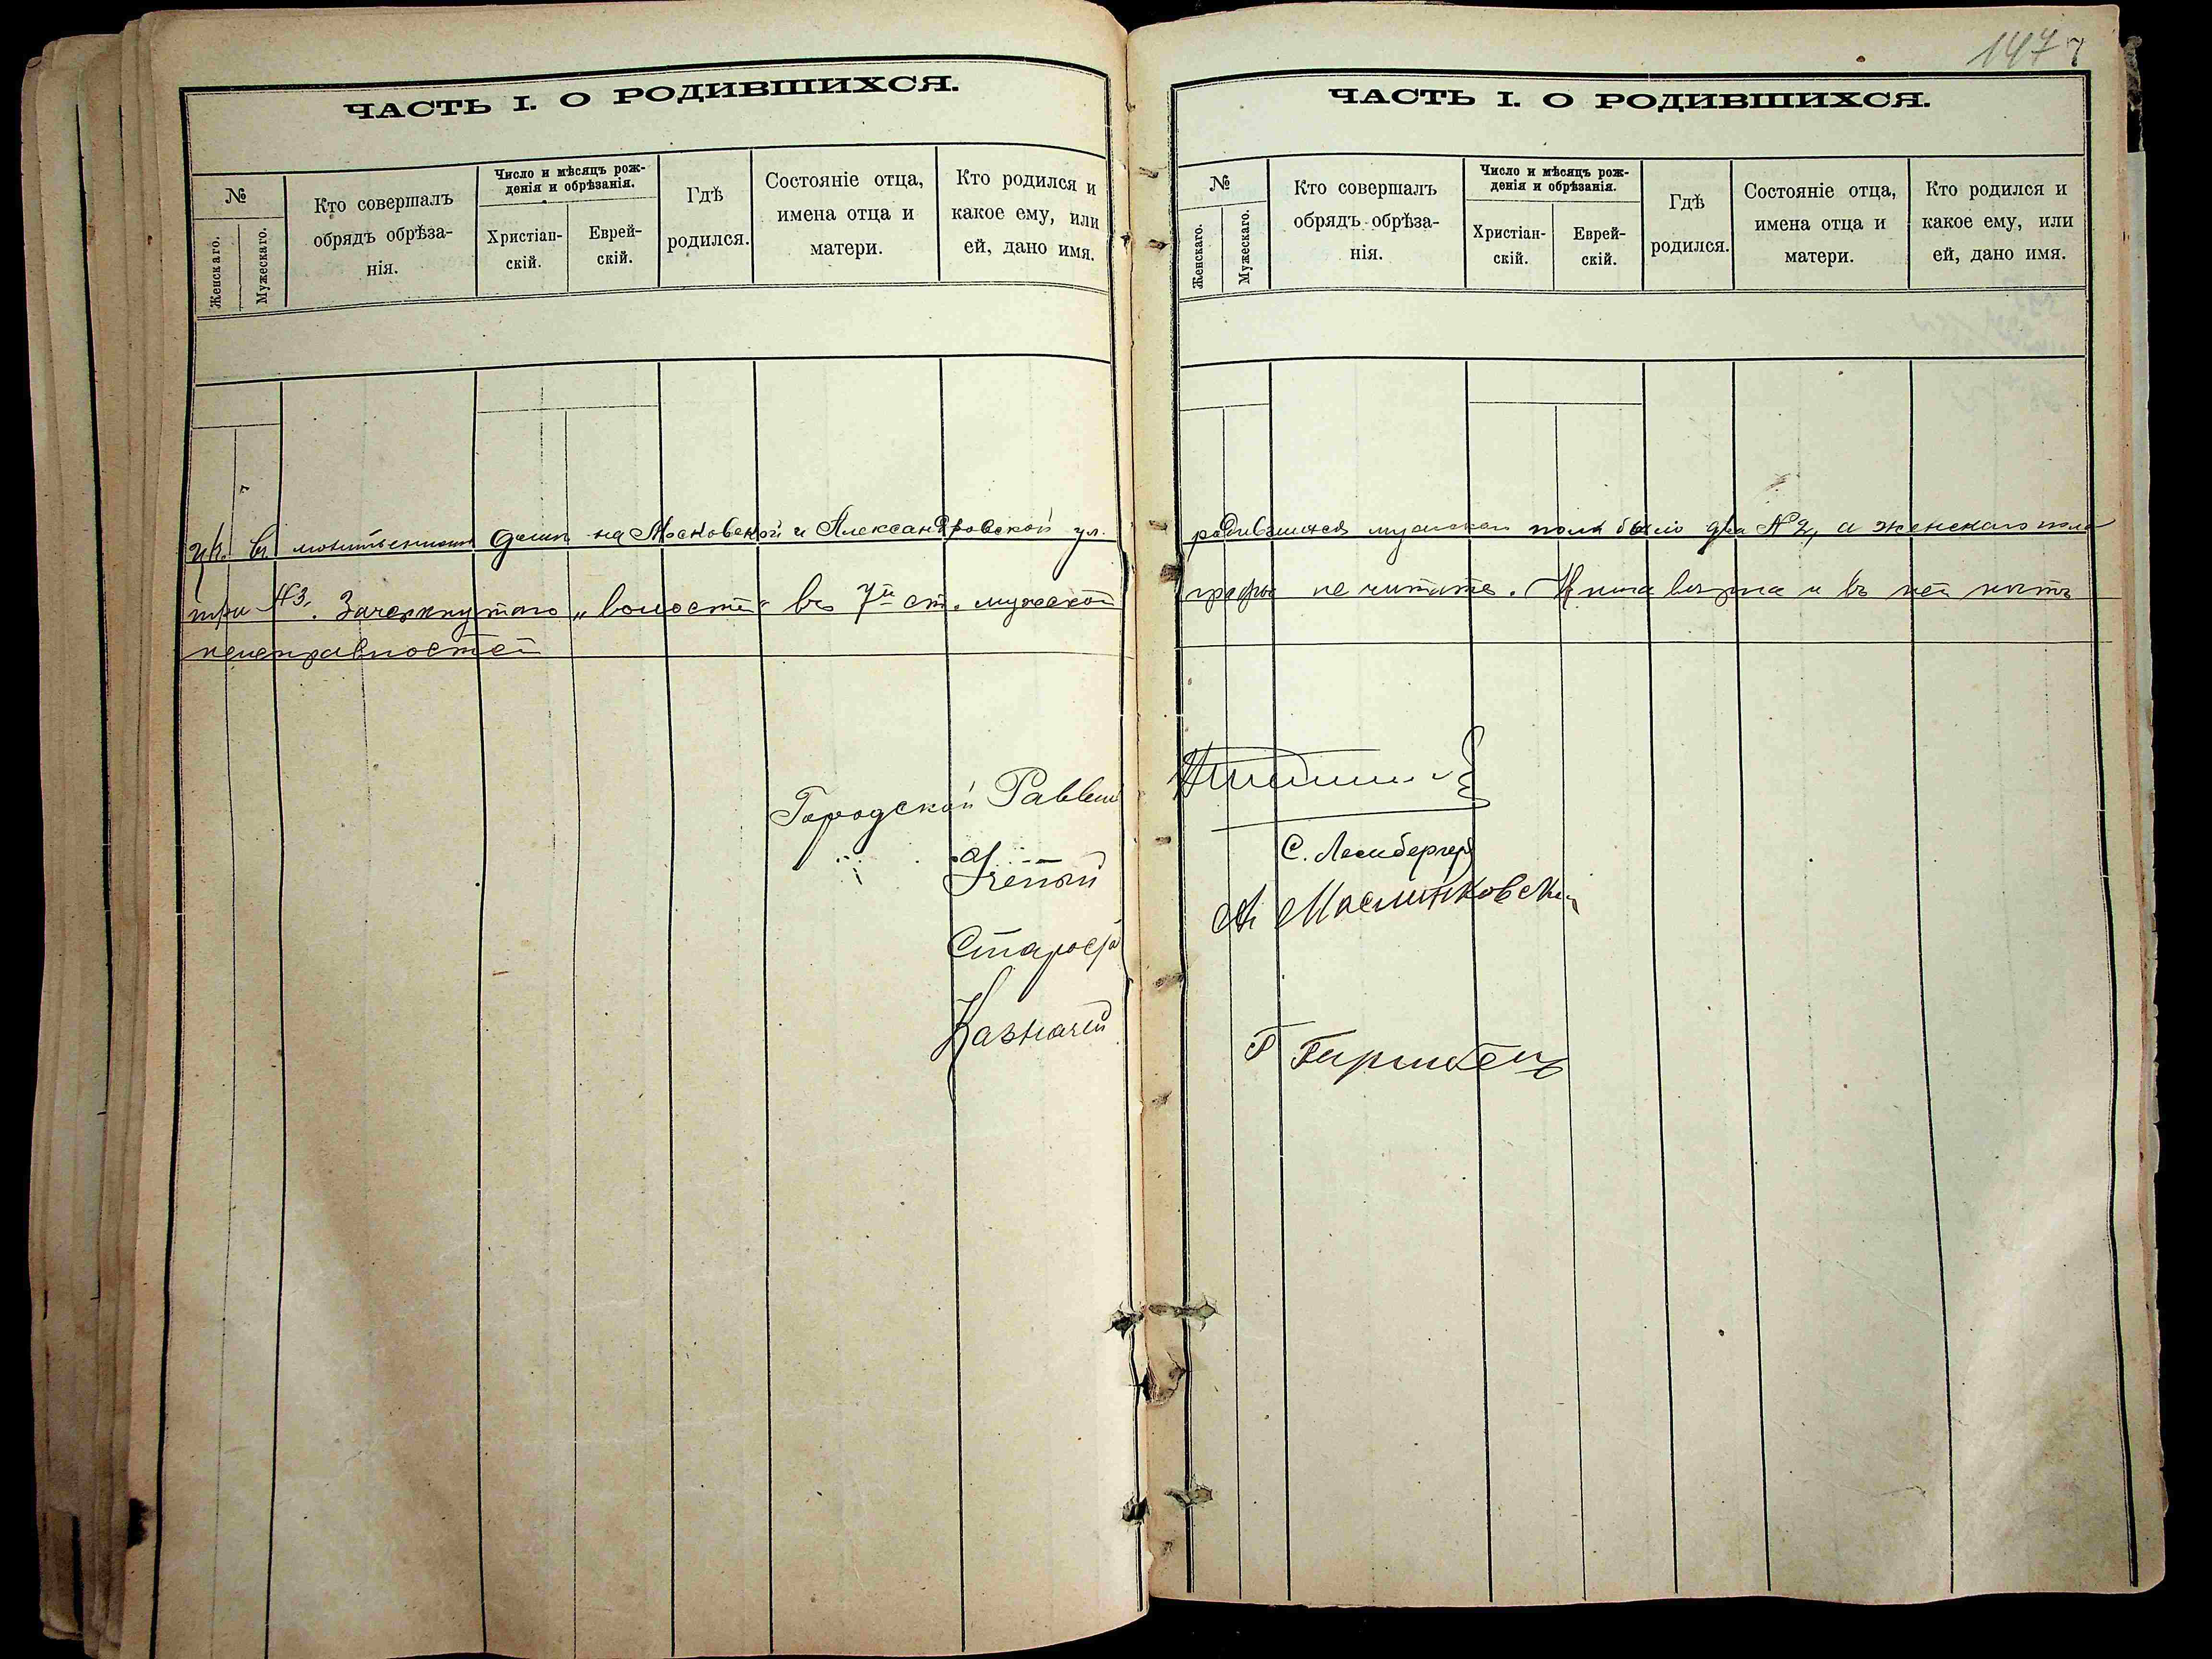 147 7
ЧАСТЬ I. О РОДИВШИХСЯ.
№
Женскаго.
Мужескаго.
Кто совершалъ
обрядъ обрѣза-
нія.
Число и мѣсяцъ рож-
денія и обрѣзанія.
Христіан-
скій.
Еврей-
скій.
Гдѣ
родился.
Состояніе отца,
имена отца и
матери.
Кто родился и
какое ему, или
ей, дано имя.
ЧАСТЬ I. О РОДИВШИХСЯ.
№
Женскаго.
Мужескаго.
Кто совершалъ
обрядъ обрѣза-
нія.
Число и мѣсяцъ рож-
денія и обрѣзанія.
Христіан-
скій.
Еврей-
скій.
Гдѣ
родился.
Состояніе отца,
имена отца и
матери.
Кто родился и
какое ему, или
ей, дано имя.
въ молитвенномъ домѣ на Московской и Александровской ул. родившихся мужскаго пола было два № 2, а женскаго пола
три № 3. Зачеркнутаго „волости" въ 7й ст. мужской графы не читать. Книга вѣрна и въ ней нѣтъ
неисправностей
Городской Раввинъ
Ученый С. Лембергер
Староста А Маслинковский
Казначей Г